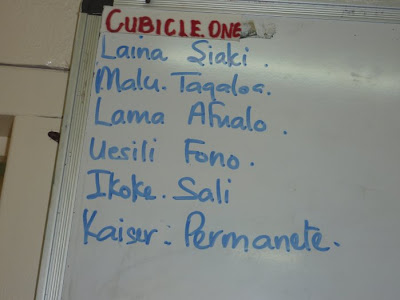 CUBICLE ONE
Laina Siaki.
Malu. Tagaloa.
Lama Afualo.
Uesili Fono.
Ikoke. Sali
Kaiser: Permanete.